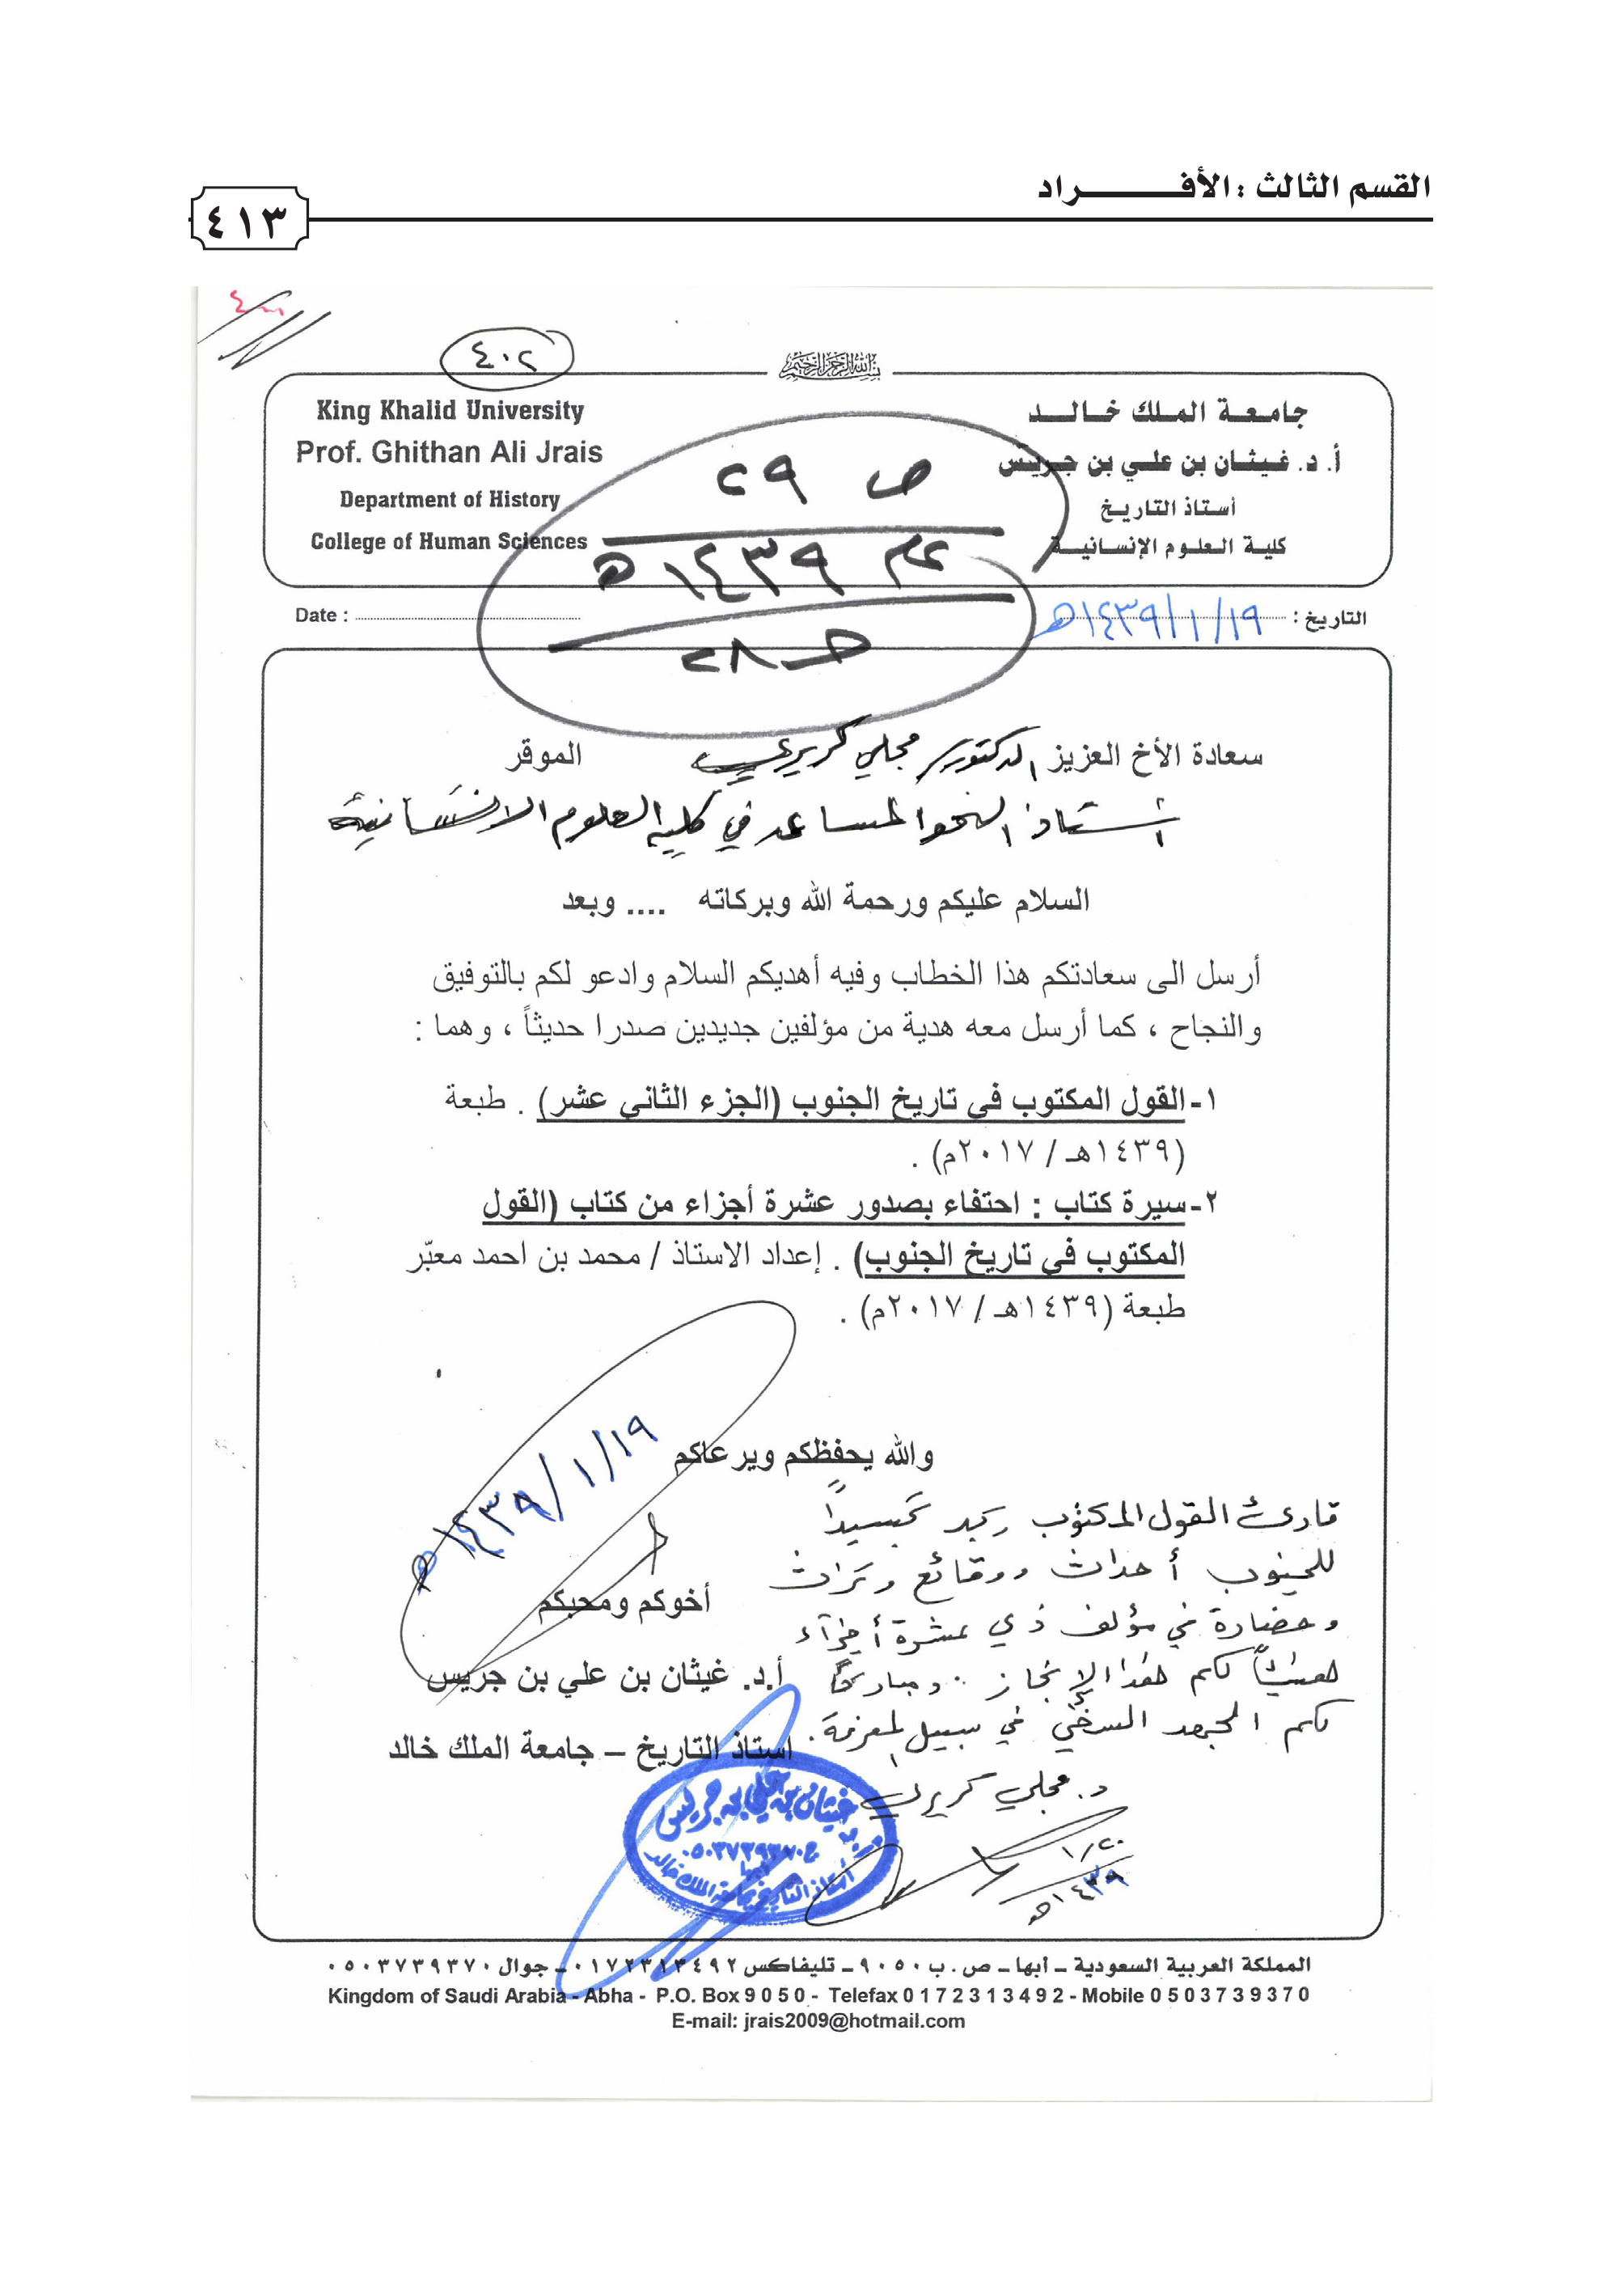 القسم الثالث : الأفـــــراد
٤١٣
٤٠٢
بسم الله الرحمن الرحيم
جامعة الملك خالد
أ. د. غيثان بن علي بن جريس
أستاذ التاريخ
كلية العلوم الإنسانية
King Khalid University
Prof. Ghithan Ali Jrais
Department of History
College of Human Sciences
ص ٢٩
عام ١٤٣٩هـ
حـ ٢٨
التاريخ : ١٤٣٩/١/١٩هـ
Date :
سعادة الأخ العزيز الدكتور مجلي كريري الموقر
أستاذ النحو المساعد في كلية العلوم الإنسانية
السلام عليكم ورحمة الله وبركاته .... وبعد
أرسل الى سعادتكم هذا الخطاب وفيه أهديكم السلام وادعو لكم بالتوفيق
والنجاح ، كما أرسل معه هدية من مؤلفين جديدين صدرا حديثاً ، وهما :
١- القول المكتوب في تاريخ الجنوب (الجزء الثاني عشر) . طبعة
(١٤٣٩هـ / ٢٠١٧م) .
٢- سيرة كتاب : احتفاء بصدور عشرة أجزاء من كتاب (القول
المكتوب في تاريخ الجنوب) . إعداد الاستاذ / محمد بن احمد معبّر
طبعة (١٤٣٩هـ / ٢٠١٧م) .
والله يحفظكم ويرعاكم
١٤٣٩/١/١٩هـ
أخوكم ومحبكم
أ.د. غيثان بن علي بن جريس
استاذ التاريخ – جامعة الملك خالد
قارئ القول المكتوب يجد تجسيداً
للجنوب أحداث ووقائع وتراث
وحضارة في مؤلف ذي عشرة أجزاء
هنيئاً لكم هذا الإنجاز .. ومباركٌ
لكم الجهد السخيّ في سبيل المعرفة .
د. مجلي كريري
١/٢٠
١٤٣٩هـ
غيثان بن علي بن جريس
ج ٠٥٠٣٧٣٩٣٧٠
أبها
أستاذ التاريخ بجامعة الملك خالد
المملكة العربية السعودية – أبها – ص . ب ٩٠٥٠ – تليفاكس ٠١٧٢٣١٣٤٩٢ – جوال ٠٥٠٣٧٣٩٣٧٠
Kingdom of Saudi Arabia - Abha - P.O. Box 9 0 5 0 - Telefax 0 1 7 2 3 1 3 4 9 2 - Mobile 0 5 0 3 7 3 9 3 7 0
E-mail: jrais2009@hotmail.com